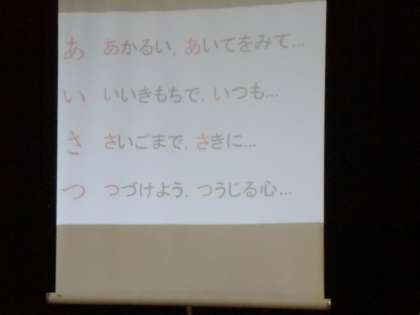 あ あかるい, あいてをみて...
い いいきもちで, いつも...
さ さいごまで, さきに...
つ つづけよう, つうじる心...